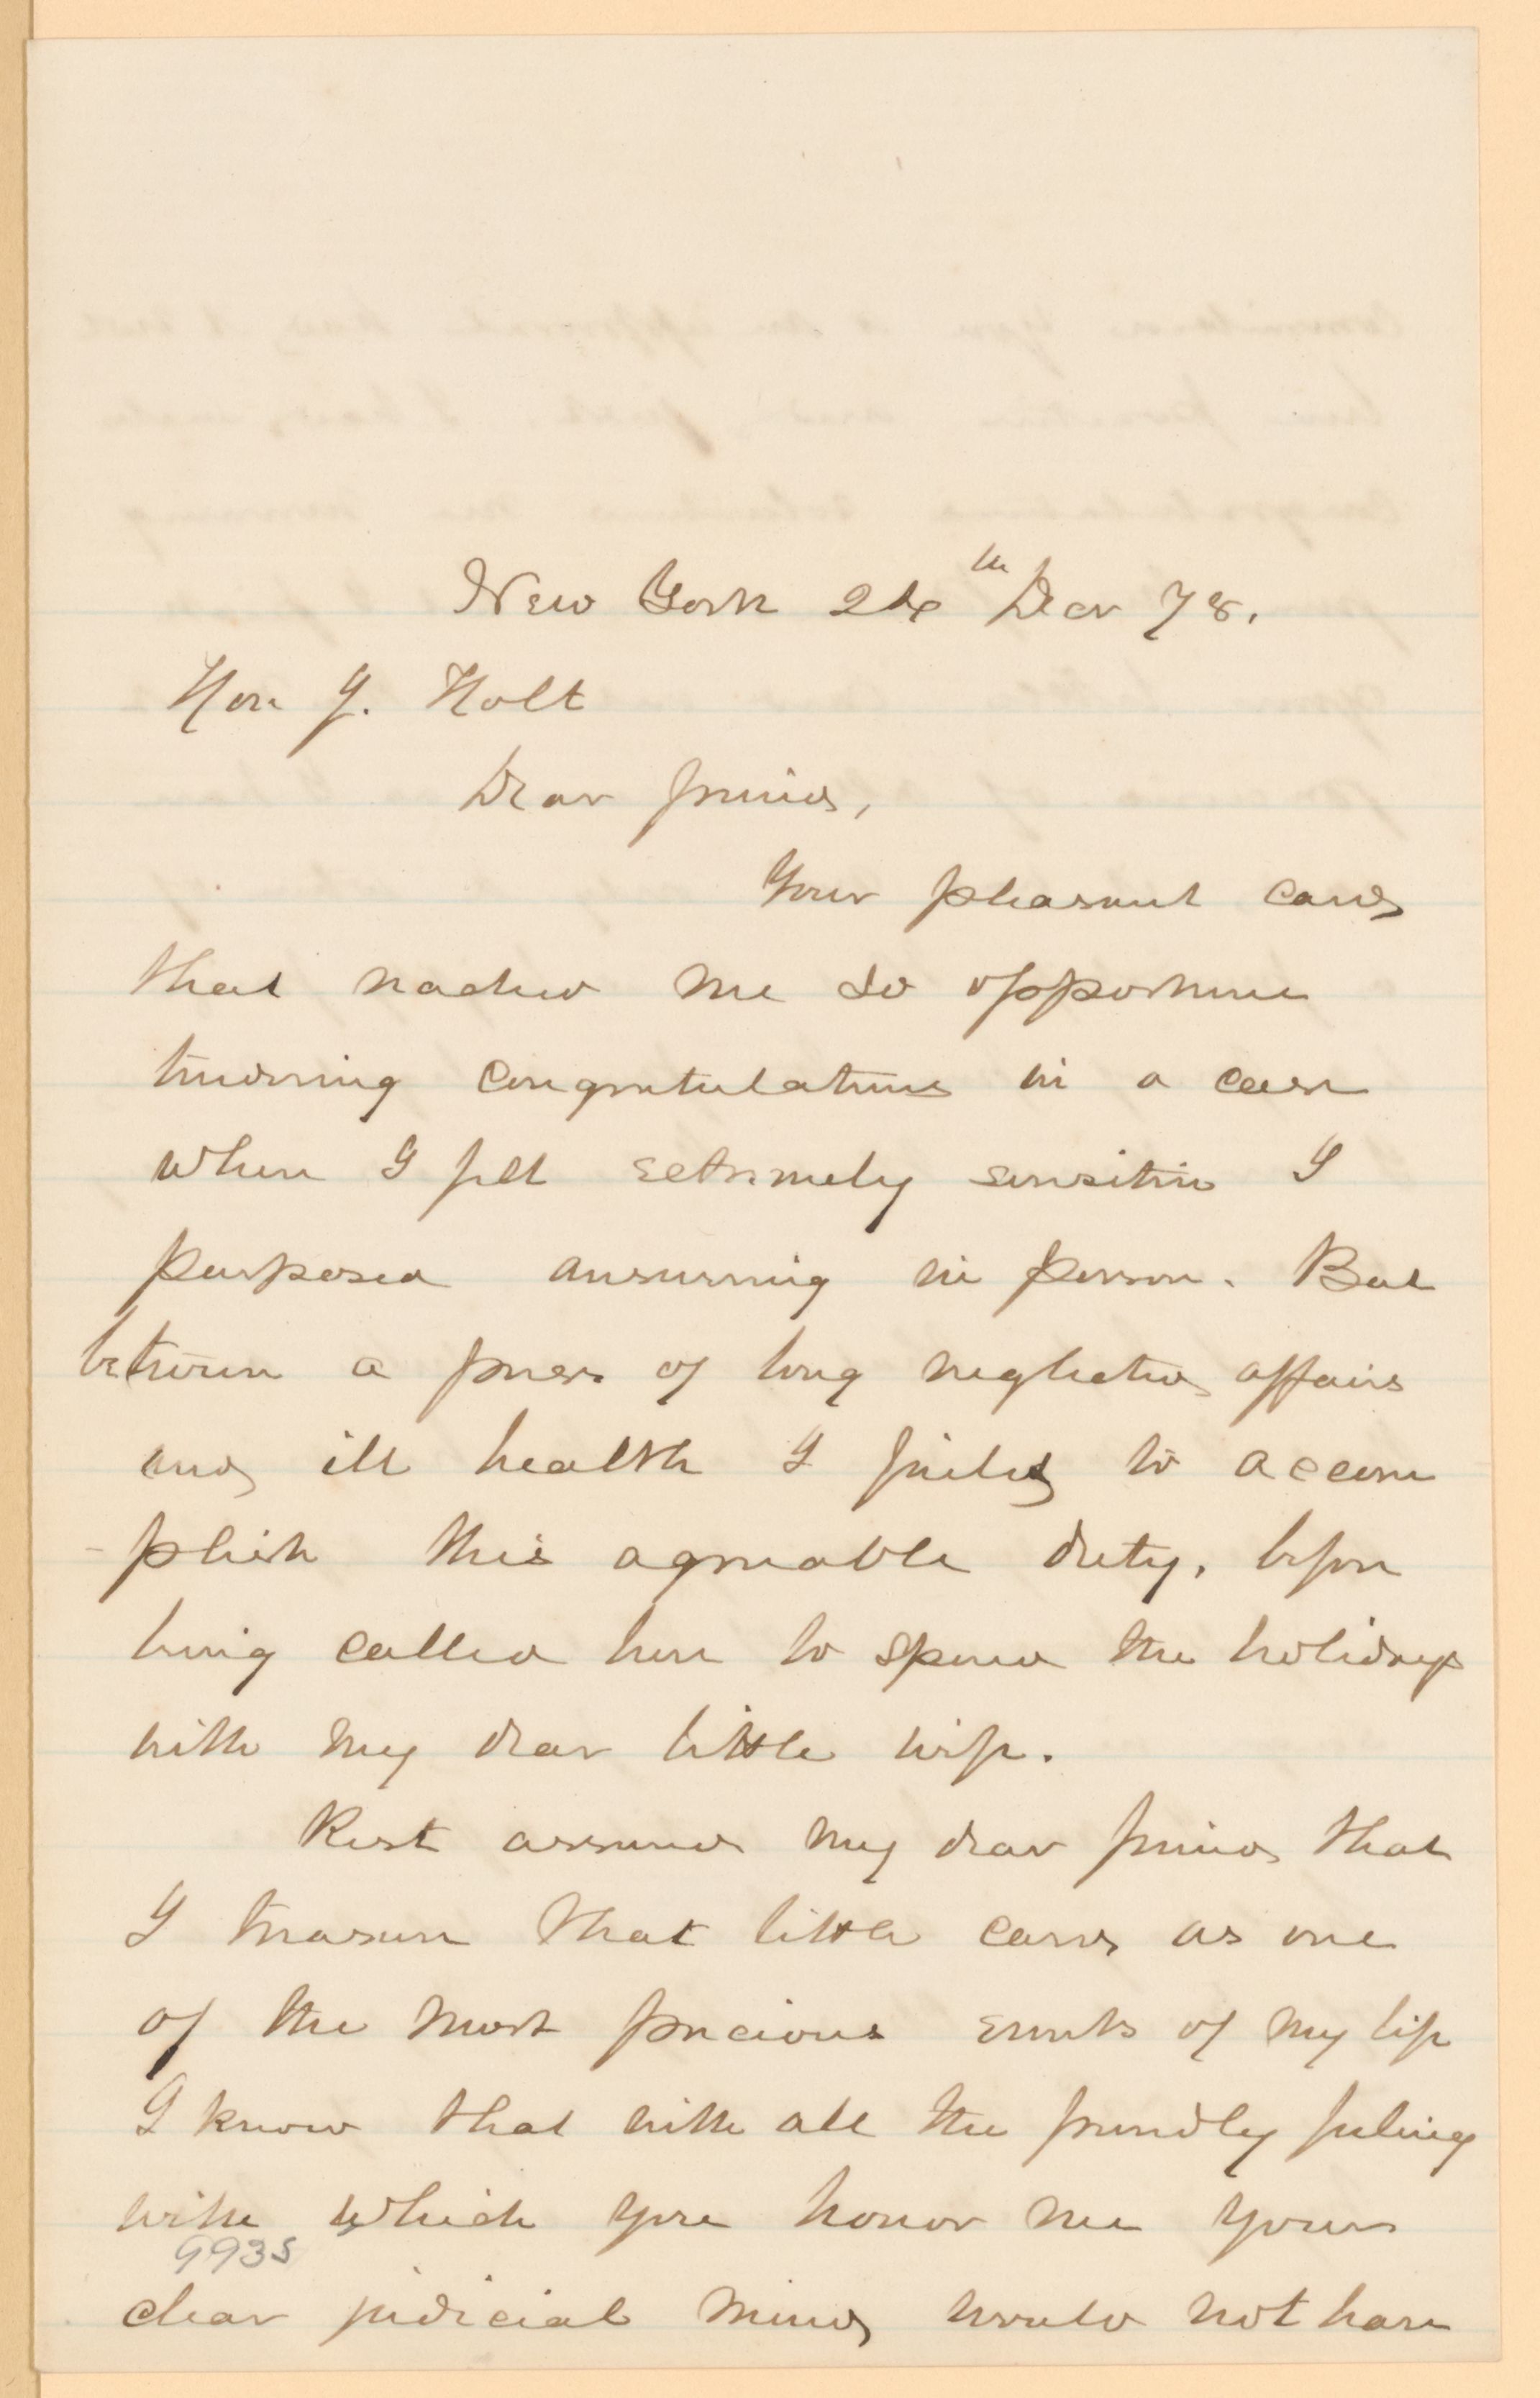 New York 24th Dec 78.
Hon J. Holt
Dear friend,
Your pleasant card
that reached me so opportune
tendering congratulations in a case
where I felt extremely sensitive I
purposed answering in person. But
between a press of long neglected affairs
and ill health I failed to accom
-plish this agreeable duty, before
being called here to spend the holidays
with my dear little wife.
Rest assured my dear friend that
I treasure that little card as one
of the most precious events of my life
I know that with all the friendly feeling
with which you honor me your
9935
clear judicial mind would not have